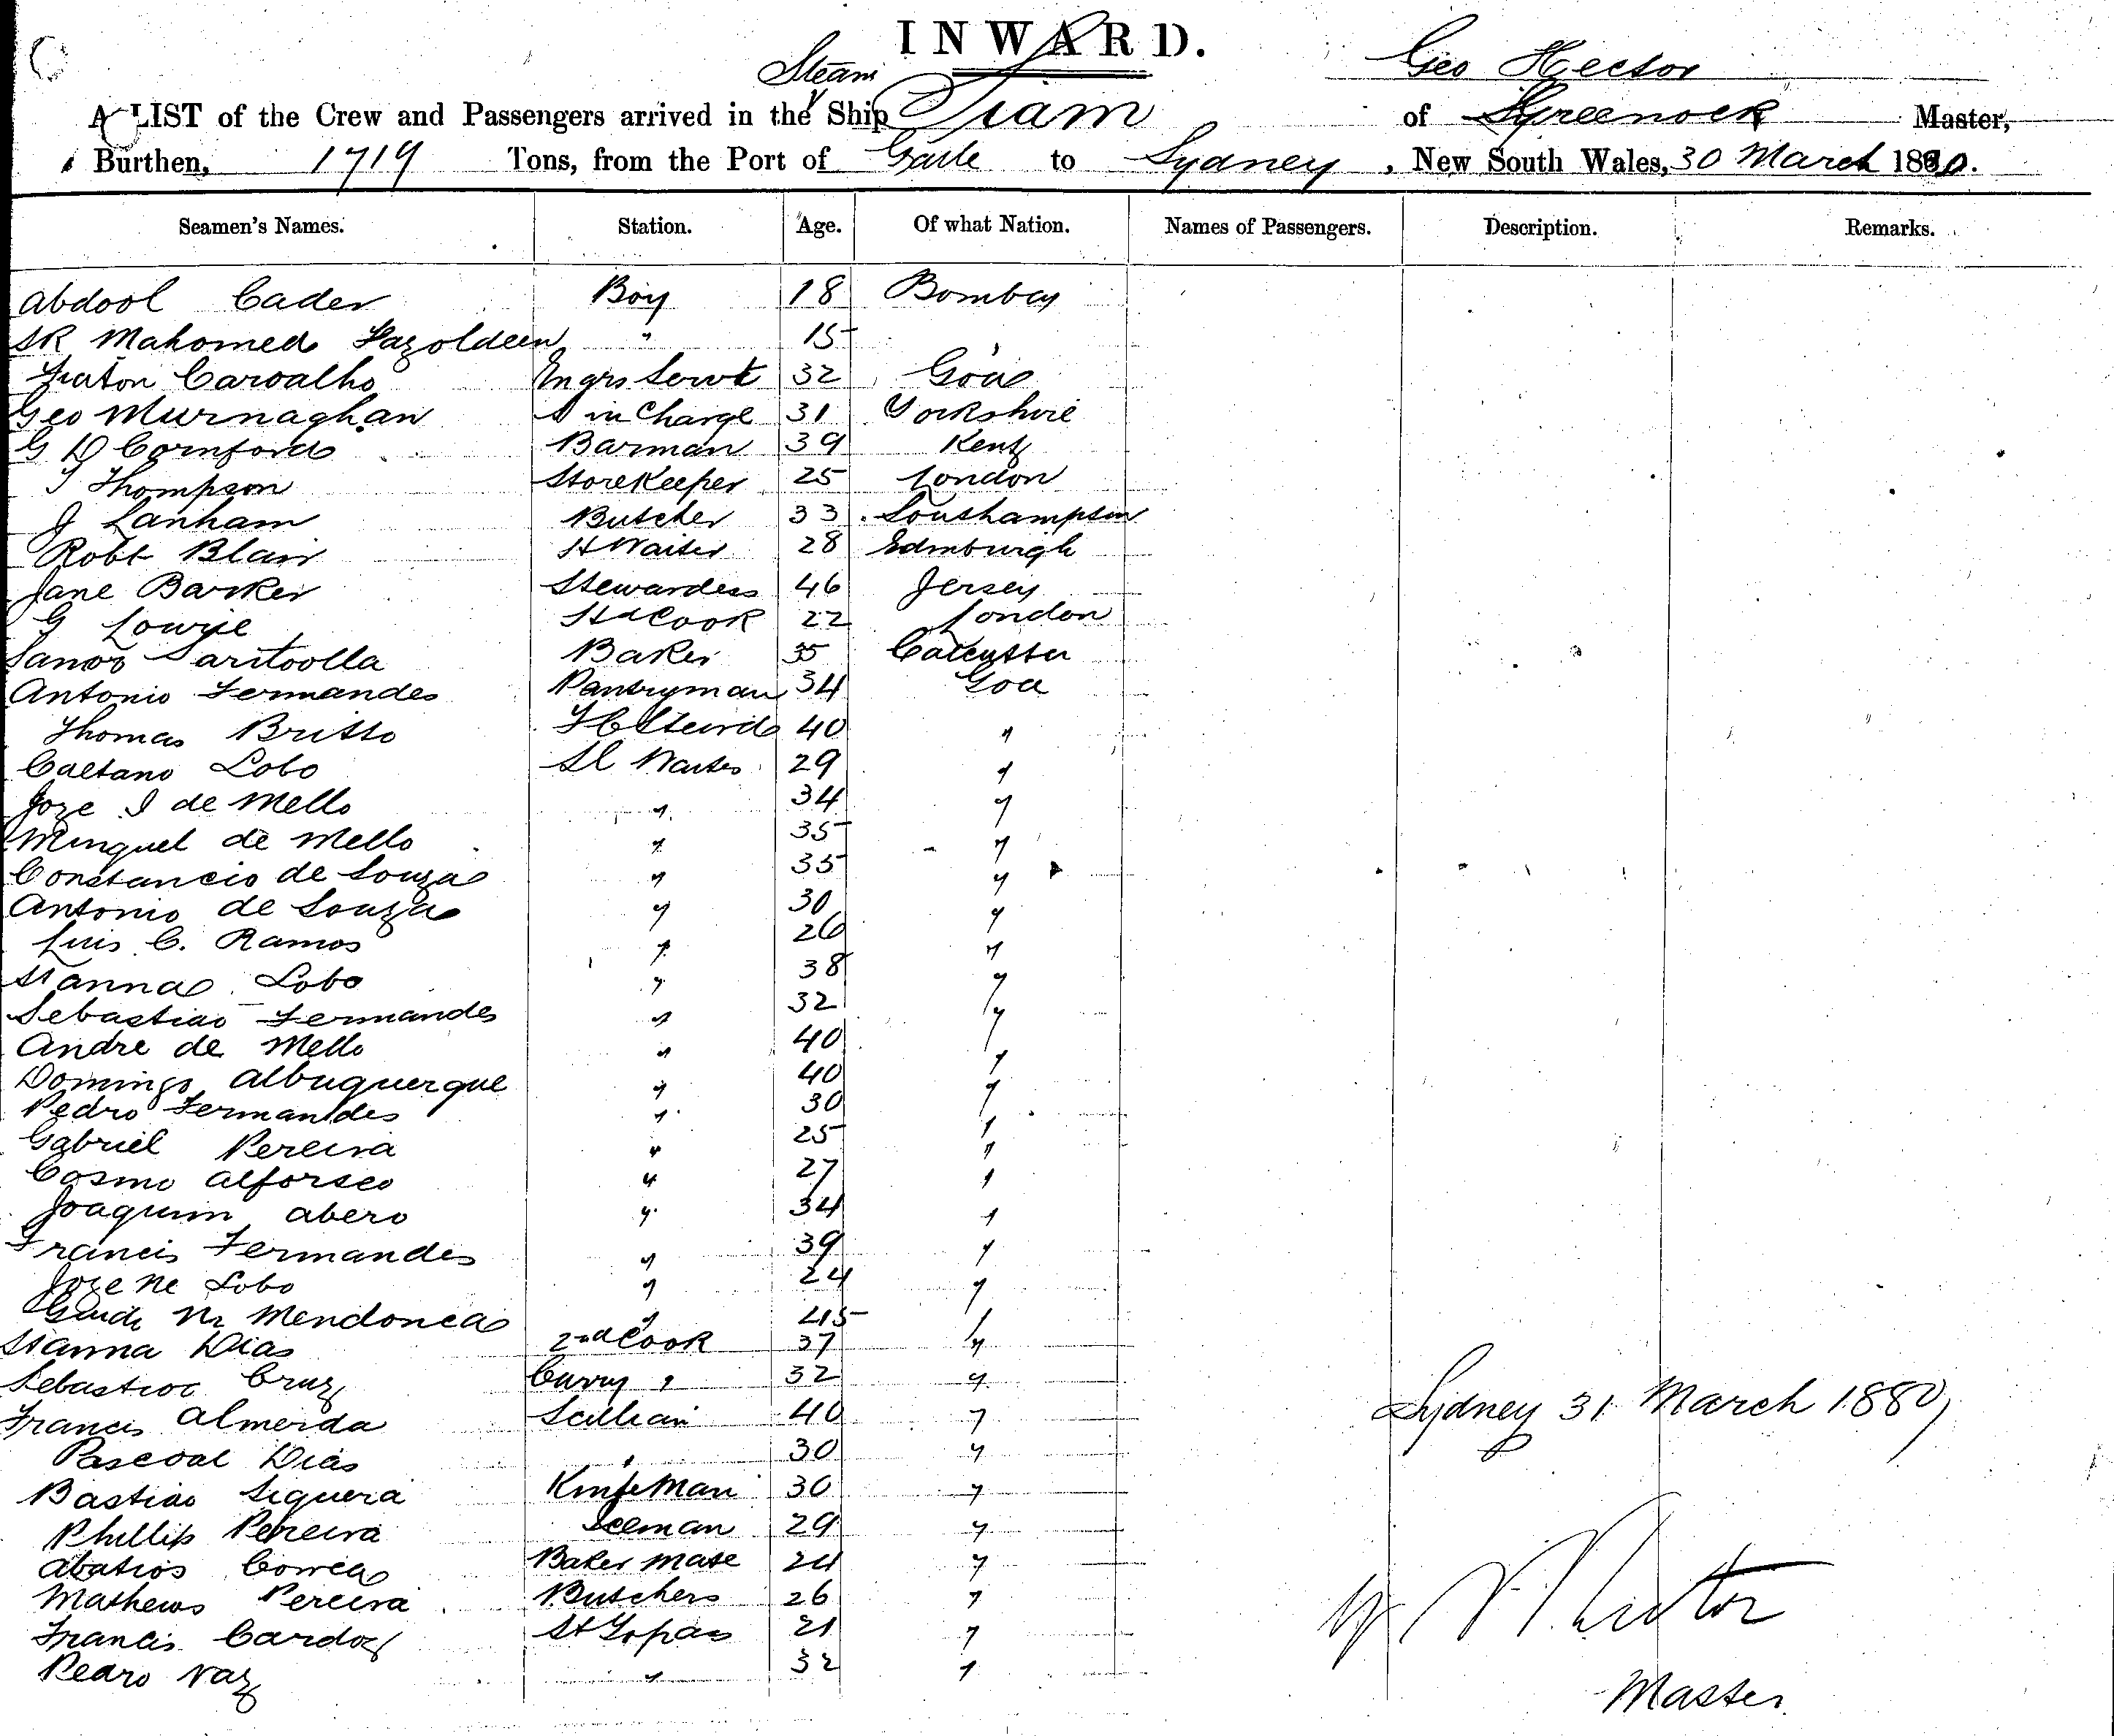 INWARD.
Geo Hector
A LIST of the Crew and Passengers arrived in the Steam Ship Siam of Greenock Master,
Burthen, 1719 Tons, from the Port of Galle to Sydney, New South Wales, 30 March 1880.
Seamen's Names. Station. Age. Of what Nation. Names of Passengers. Description. Remarks.
Abdool Cader Boy 18 Bombay
SK Mahomed Fazoldeen " 15 "
Caroalho Engrs Servt 32 Goa
Geo Murnaghan S in Charge 31 Yorkshire
G D Cornford Barman 39 Kent
T Thompson Storekeeper 25 London
J Lanham Butcher 33 Southampton
Robt Blair H Waiter 28 Edinburgh
Jane Barker Stewardess 46 Jersey
G Lowrie Hd Cook 22 London
Saritoolla Baker 35 Calcutta
Antonio Fernandes Pantryman 34 Goa
Thomas Britto 40 "
Caetano Lobo Sl Waiter 29 "
Joze I de Mello " 34 "
Minguel de Mello " 35 "
Constancio de Souza " 35 "
Antonio de Souza " 30 "
Luis C. Ramos " 26 "
Lobo " 38 "
Sebastiao Fernandes " 32 "
Andre de Mello " 40 "
Domingo Albuquerque " 40 "
Pedro Fernandes " 30 "
Gabriel Pereira " 25 "
Cosmo Alfonseo " 27 "
Joaquim Abero " 34 "
Francis Fernandes " 39 "
Joze Lobo " 24 "
Mendonca " 45 "
Dias 2nd Cook 37 "
Sebastiao Cruz Curry " 32 "
Francis Almerda 40 "
Pascoal Dias " 30 "
Bastiao Siquera Knife Man 30 "
Phillip Pereira Iceman 29 "
Correa Baker Mate 24 "
Mathews Pereira Butchers 26 "
Francis Cardoz St Topas 21 "
Pedro Vaz " 32 "
Sydney 31 March 1880
Master